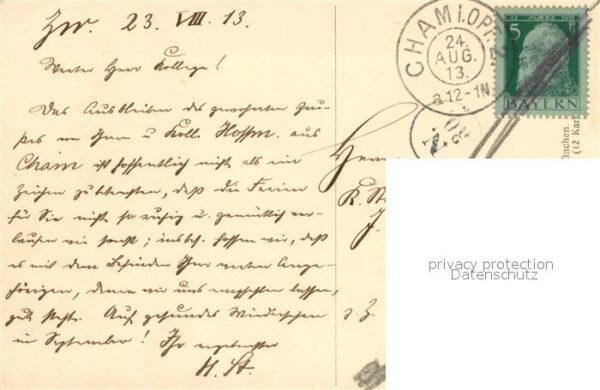 Zw. 23. VIII. 13.
Werter Herr Kollege!
Das Ausbleiben des gewohnten Gru-
ßes von Ihnen u. Koll. Hoffm. aus
Cham ist hoffentlich nicht als ein
Zeichen zu betrachten, daß die Ferien
für Sie nicht so ruhig u. gemütlich ver-
laufen wie sonst; insbes. hoffen wir, daß
es mit dem Befinden Ihrer werten Ange-
hörigen, denen wir uns empfehlen lassen,
gut steht. Auf gesundes Wiedersehen
im September! Ihr ergebenster
H. St.
CHAM I.OPF.
24.
AUG.
13.
12-1N
5
12. MÄRZ 1911
BAYERN
Herrn
K. St
J.
z. Z.
München.
(12 Kart
privacy protection
Datenschutz